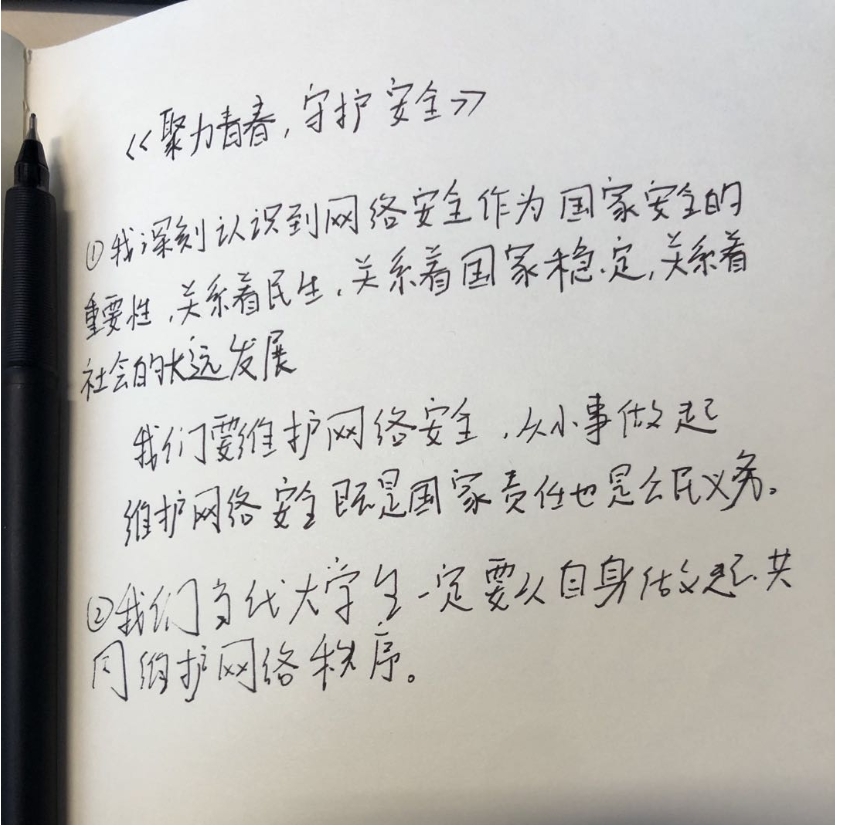 《聚力青春，守护安全》
①我深刻认识到网络安全作为国家安全的
重要性，关系着民生，关系着国家稳定，关系着
社会的长远发展
我们要维护网络安全，从小事做起
维护网络安全既是国家责任也是公民义务。
②我们当代大学生一定要从自身做起、共
同维护网络秩序。